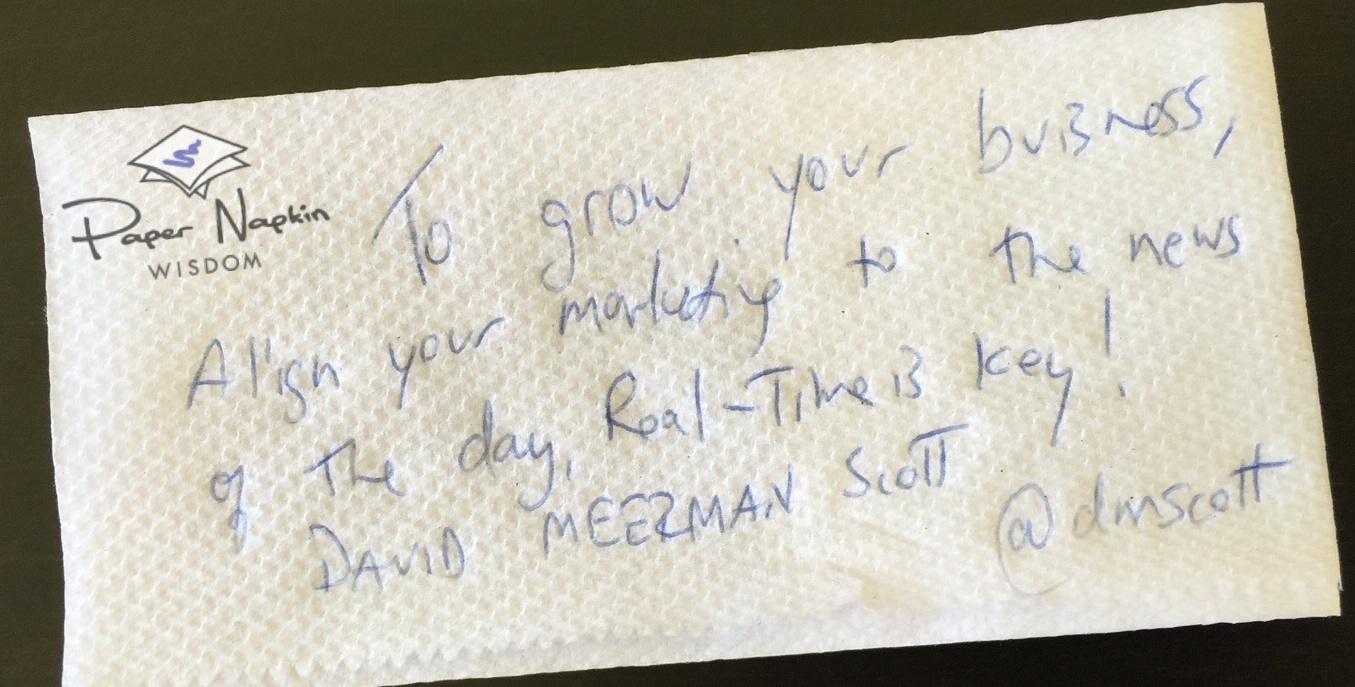 Paper Napkin
WISDOM
To grow your buisness,
Align your marketing to the news
of the day, Real-Time is key!
DAVID MEERMAN Scott
@dmscott